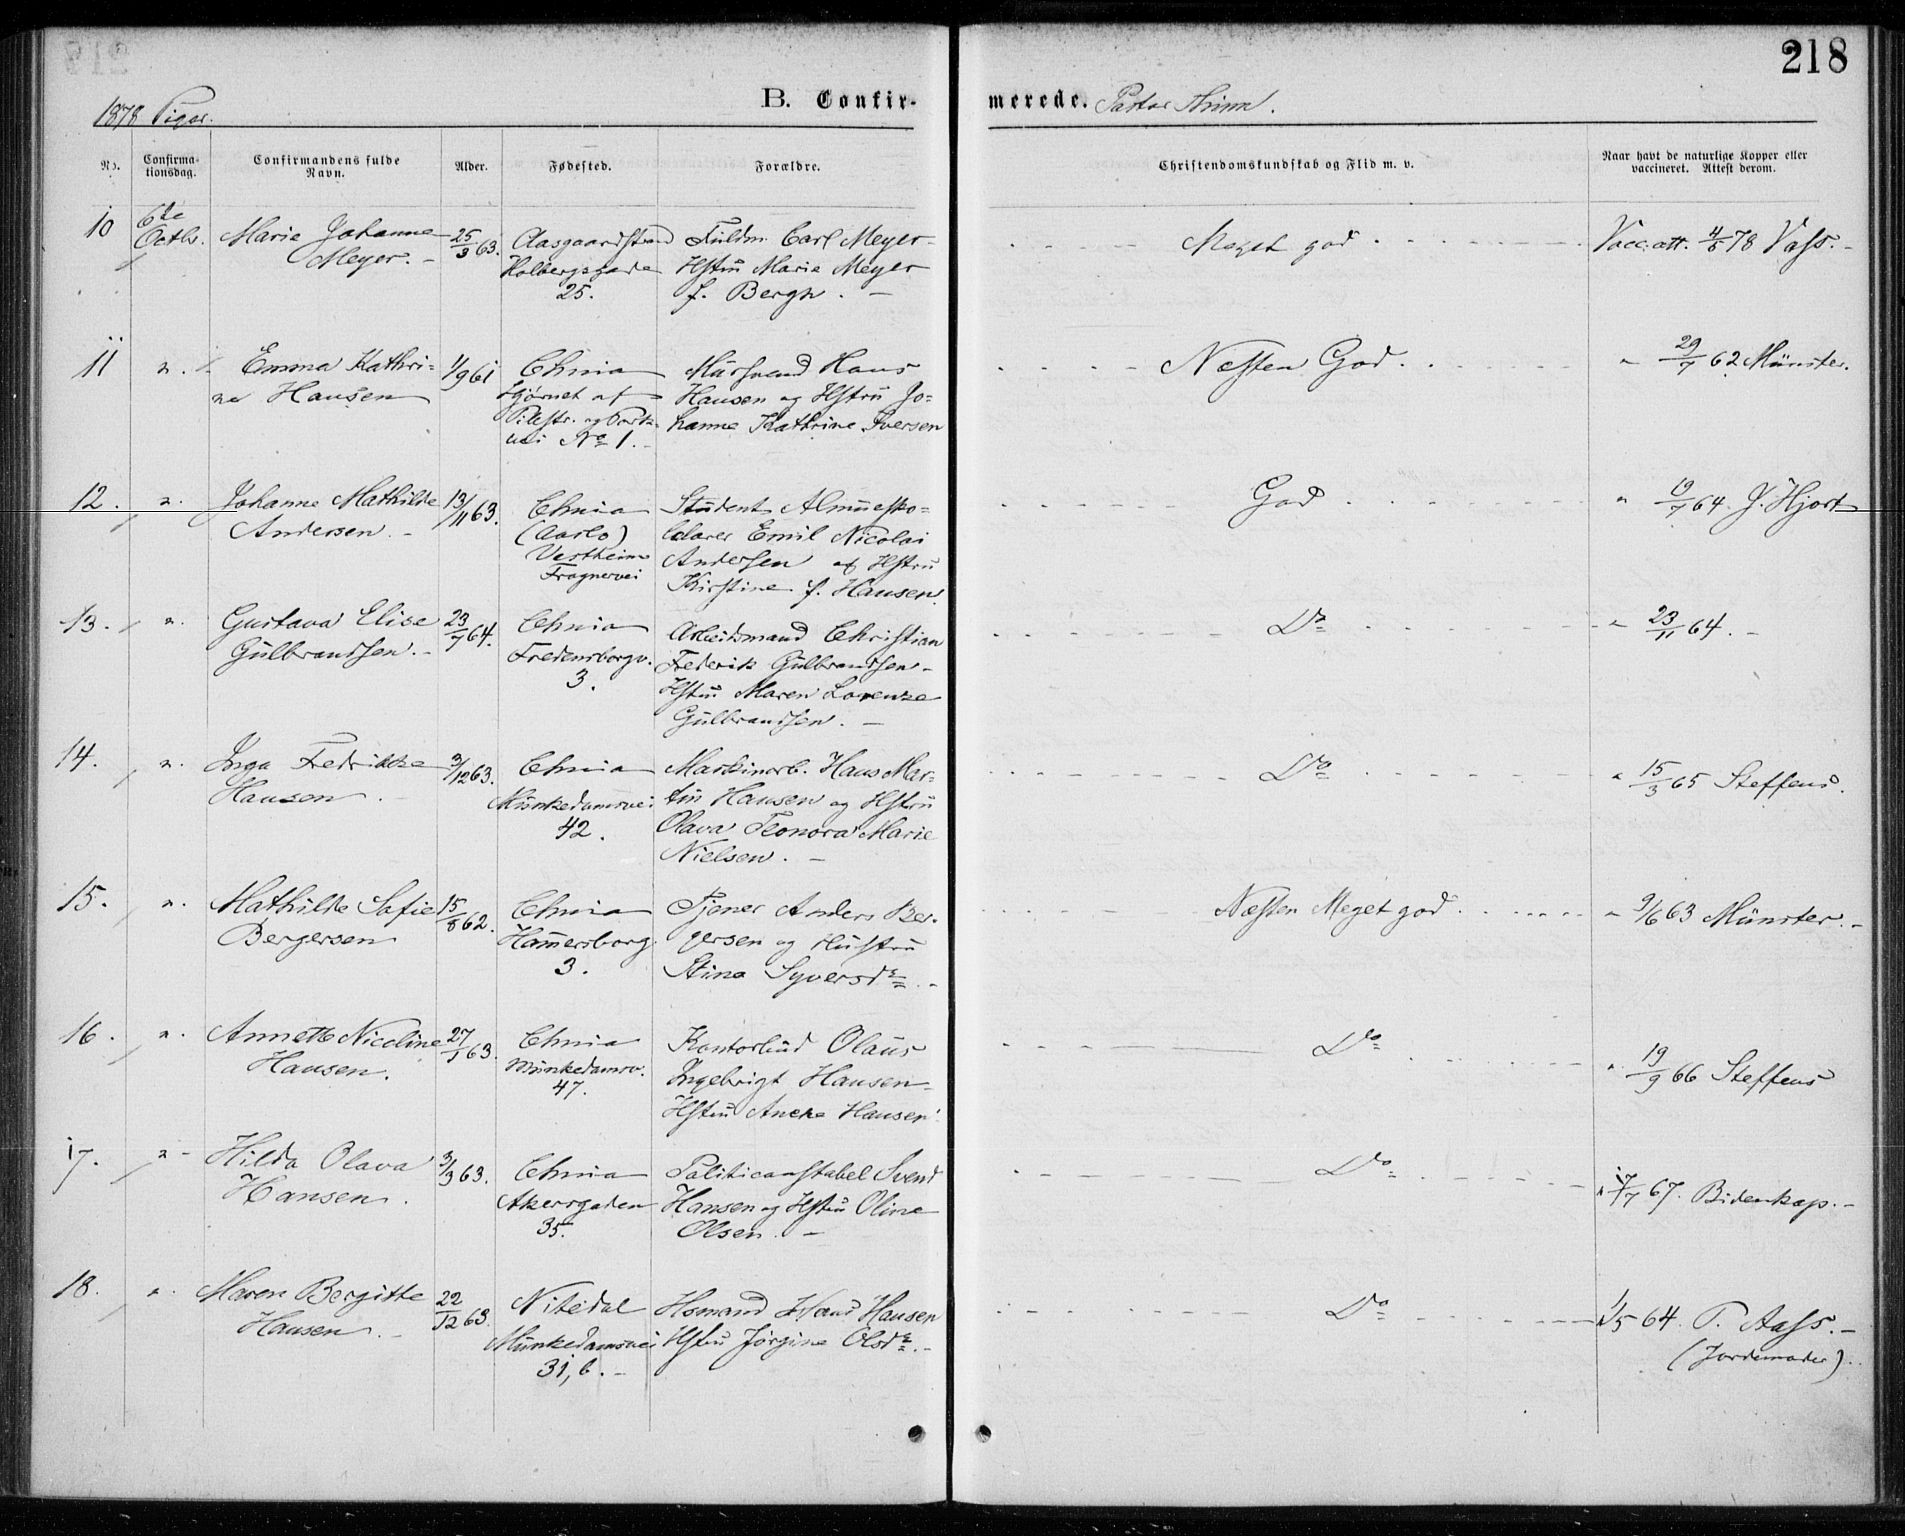 218
1878 Piger.
B. Confirmerede. Pastor
No.
Confirmationsdag.
Confirmandens fulde Navn.
Alder.
Fødested.
Forældre.
Christendomskundskab og Flid m. v.
Naar havt de naturlige Kopper eller vaccineret. Attest derom.
10 6te Octbr. Marie Johanne 25/3 63. Aasgaardstrand Fuldm. Carl Meyer - Meget god Vacc. att. 4/5 78 Vass. -
Meyer. - Holbergsgade Hstru Marie Meyer
25. f. Bergh. -
11 " - Emma Kathri- 1/9 61 Chnia Mursvend Hans Næsten God. " 29/7 62 Münster.
ne Hansen Hjørnet af Hansen og Hstru Jo-
Pilestr. og Park- hanne Kathrine Iversen
vei No 1. -
12. " Johanne Mathilde 13/11 63. Chnia Student Almuesko- God " 19/7 64. J. Hjort
Andersen. - (Aarlo) lelærer Emil Nicolai
Vestheim Andersen og Hstru
Frognervei Kirstine f. Hansen.
13. " Gustava Elise 23/7 64. Chnia Arbeidsmand Christian Do " 23/11 64. -
Gulbrandsen. - Fredensborgv. Frederik Gulbrandsen -
3. Hstru Maren Lorenze
Gulbrandsen. -
14. " Inga Fredrikke 3/12 63. Chnia Maskinarb. Hans Mar- Do " 15/3 65 Steffens.
Hansen. - Munkedamsvei tin Hansen og Hstru
42. Olava Leonora Marie
Nielsen. -
15. " Mathilde Sofie 15/8 62. Chnia Tjener Anders Ber- Næsten Meget god " 9/6 63 Münster. -
Bergersen Hammersborg. gersen og Hustru
3. Stina Syversdr. -
16. " Annette Nicoline 27/1 63. Chnia Kontorbud Olaus Do " 19/9 66 Steffens
Hansen. Munkedamsv. Ingebrigt Hansen -
47. Hstru Hansen
17. " - Hilda Olava 3/3 63. Chnia Politieonstabel Svend Do " 17/7 67. Bidenkap. -
Hansen. Akersgaden Hansen og Hstru Oline
35. Olsen. -
18. " Maren Bergitte 22/12 63. Nitedal Hsmand Hans Hansen Do " 1/5 64. P. Aass. -
Hansen. - Munkedamsvei Hstru Jørgine Olsdr. - (Jordemoder).
31, b. -